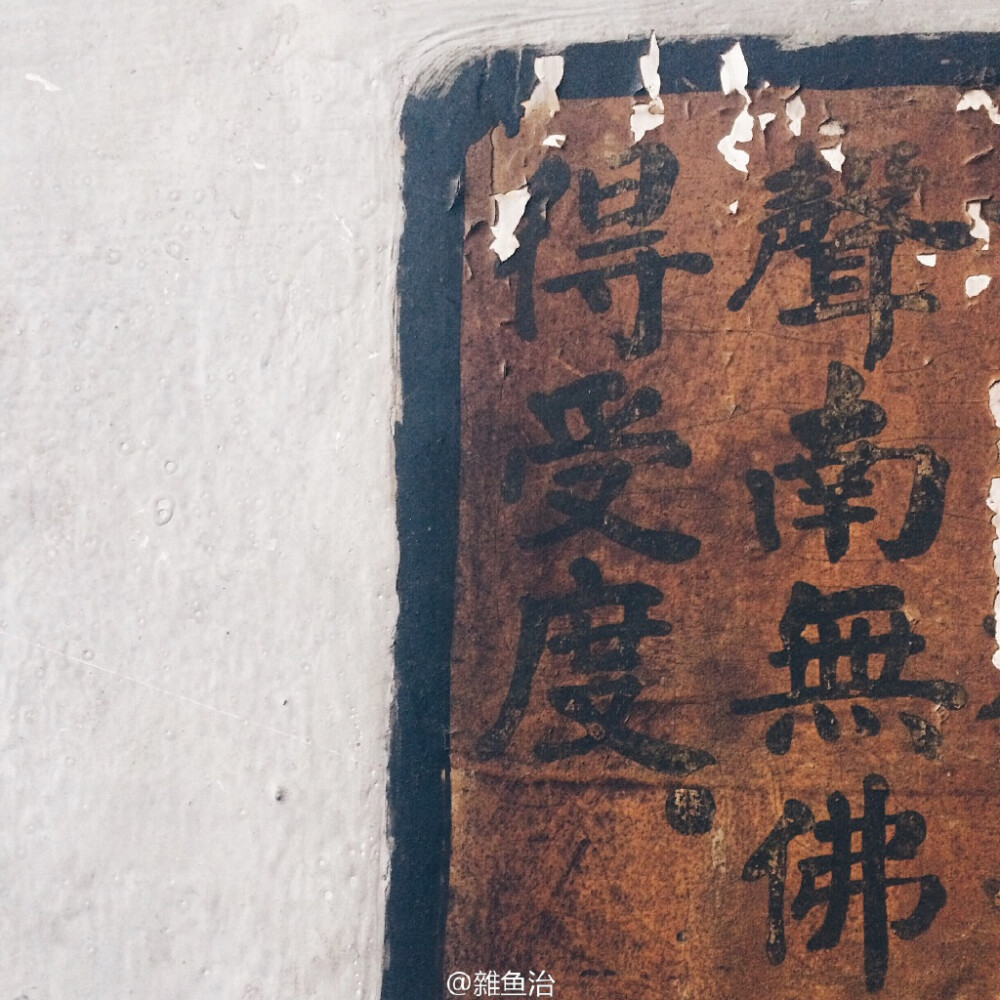 聲南無佛
得受度
@雜鱼治